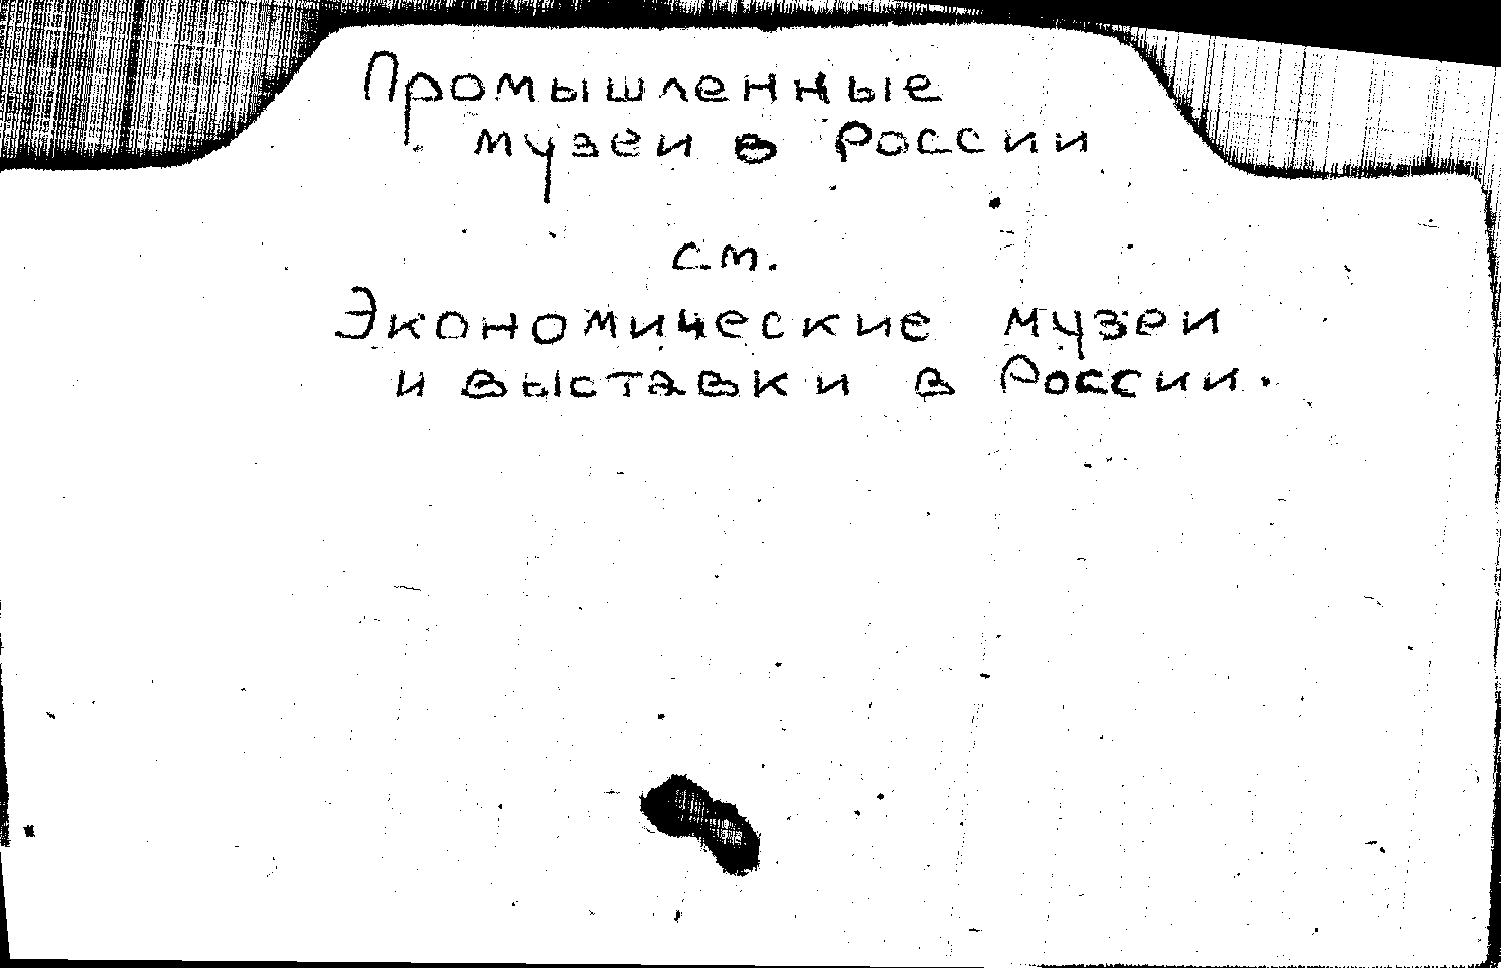 Промышленные
музеи в России
см.
Экономические музеи
и выставки в России.